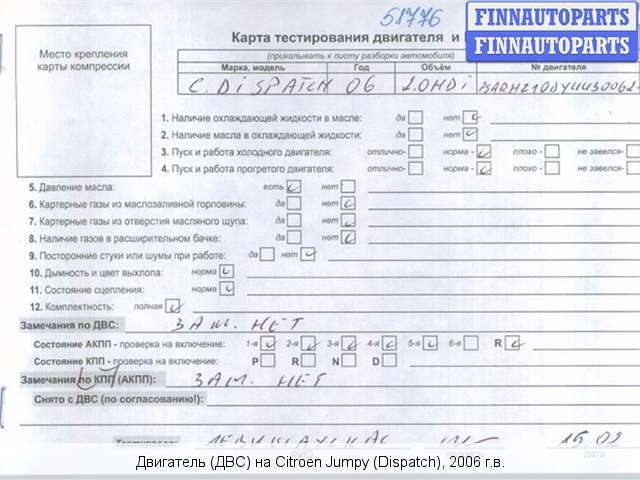 51776
FINNAUTOPARTS
FINNAUTOPARTS
Карта тестирования двигателя и
(прикалывать к листу разборки автомобиля)
Место крепления
карты компрессии
Марка, модель Год Объём № двигателя
C. DISPATCH 06 2.0HDi
1. Наличие охлаждающей жидкости в масле: да нет
2. Наличие масла в охлаждающей жидкости: да нет
3. Пуск и работа холодного двигателя: отлично- норма - плохо - не завелся-
4. Пуск и работа прогретого двигателя: отлично- норма - плохо - не завелся-
5. Давление масла: есть нет
6. Картерные газы из маслозаливной горловины: да нет
7. Картерные газы из отверстия масляного щупа: да нет
8. Наличие газов в расширительном бачке: да нет
9. Посторонние стуки или шумы при работе: да нет
10. Дымность и цвет выхлопа: норма
11. Состояние сцепления: норма
12. Комплектность: полная
Замечания по ДВС: ЗАМ. НЕТ
Состояние АКПП - проверка на включение: 1-я 2-я 3-я 4-я 5-я 6-я R
Состояние КПП - проверка на включение: P R N D
Замечания по КПП (АКПП): ЗАМ. НЕТ
Снято с ДВС (по согласованию!):
15.02
дата
Двигатель (ДВС) на Citroen Jumpy (Dispatch), 2006 г.в.